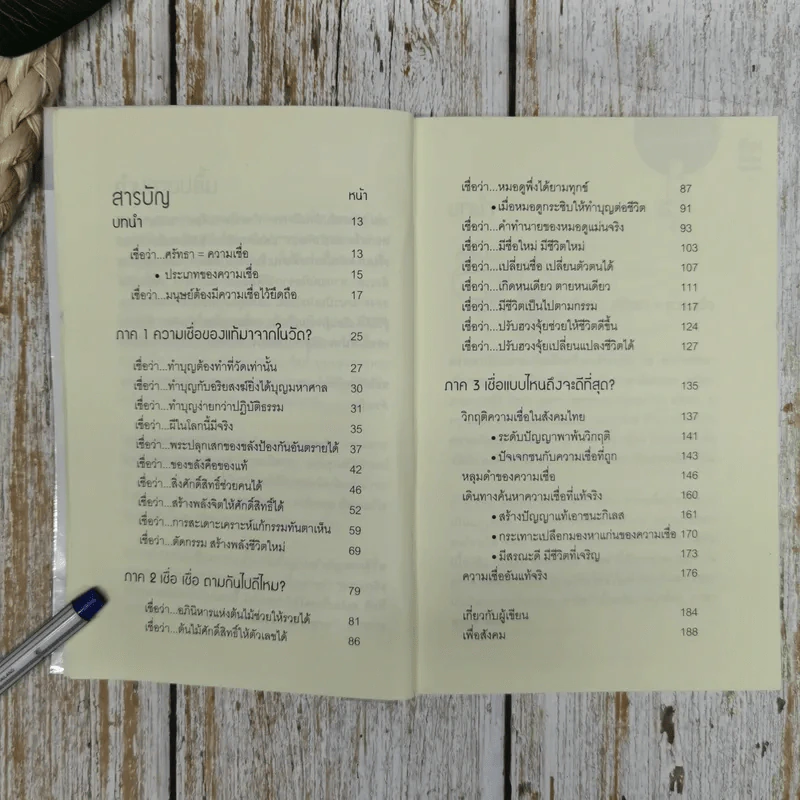 สารบัญ หน้า
บทนำ 13
เชื่อว่า...ศรัทธา = ความเชื่อ 13
• ประเภทของความเชื่อ 15
เชื่อว่า...มนุษย์ต้องมีความเชื่อไว้ยึดถือ 17
ภาค 1 ความเชื่อของแท้มาจากในวัด? 25
เชื่อว่า...ทำบุญต้องทำที่วัดเท่านั้น 27
เชื่อว่า...ทำบุญกับอริยสงฆ์ยิ่งได้บุญมหาศาล 30
เชื่อว่า...ทำบุญง่ายกว่าปฏิบัติธรรม 31
เชื่อว่า...ผีในโลกนี้มีจริง 35
เชื่อว่า...พระปลุกเสกของขลังป้องกันอันตรายได้ 37
เชื่อว่า...ของขลังคือของแท้ 42
เชื่อว่า...สิ่งศักดิ์สิทธิ์ช่วยคนได้ 46
เชื่อว่า...สร้างพลังจิตให้ศักดิ์สิทธิ์ได้ 52
เชื่อว่า...การสะเดาะเคราะห์แก้กรรมทันตาเห็น 59
เชื่อว่า...ตัดกรรม สร้างพลังชีวิตใหม่ 69
ภาค 2 เชื่อ เชื่อ ตามกันไปดีไหม? 79
เชื่อว่า...อภินิหารแห่งต้นไม้ช่วยให้รวยได้ 81
เชื่อว่า...ต้นไม้ศักดิ์สิทธิ์ให้ตัวเลขได้ 86
เชื่อว่า...หมอดูพึ่งได้ยามทุกข์ 87
• เมื่อหมอดูกระซิบให้ทำบุญต่อชีวิต 91
เชื่อว่า...คำทำนายของหมอดูแม่นจริง 93
เชื่อว่า...มีชื่อใหม่ มีชีวิตใหม่ 103
เชื่อว่า...เปลี่ยนชื่อ เปลี่ยนตัวตนได้ 107
เชื่อว่า...เกิดหนเดียว ตายหนเดียว 111
เชื่อว่า...มีชีวิตเป็นไปตามกรรม 117
เชื่อว่า...ปรับฮวงจุ้ยช่วยให้ชีวิตดีขึ้น 124
เชื่อว่า...ปรับฮวงจุ้ยเปลี่ยนแปลงชีวิตได้ 127
ภาค 3 เชื่อแบบไหนถึงจะดีที่สุด? 135
วิกฤติความเชื่อในสังคมไทย 137
• ระดับปัญญาพาพ้นวิกฤติ 141
• ปัจเจกชนกับความเชื่อที่ถูก 143
หลุมดำของความเชื่อ 146
เดินทางค้นหาความเชื่อที่แท้จริง 160
• สร้างปัญญาแท้เอาชนะกิเลส 161
• กระเทาะเปลือกมองหาแก่นของความเชื่อ 170
• มีสรณะดี มีชีวิตที่เจริญ 173
ความเชื่ออันแท้จริง 176
เกี่ยวกับผู้เขียน 184
เพื่อสังคม 188